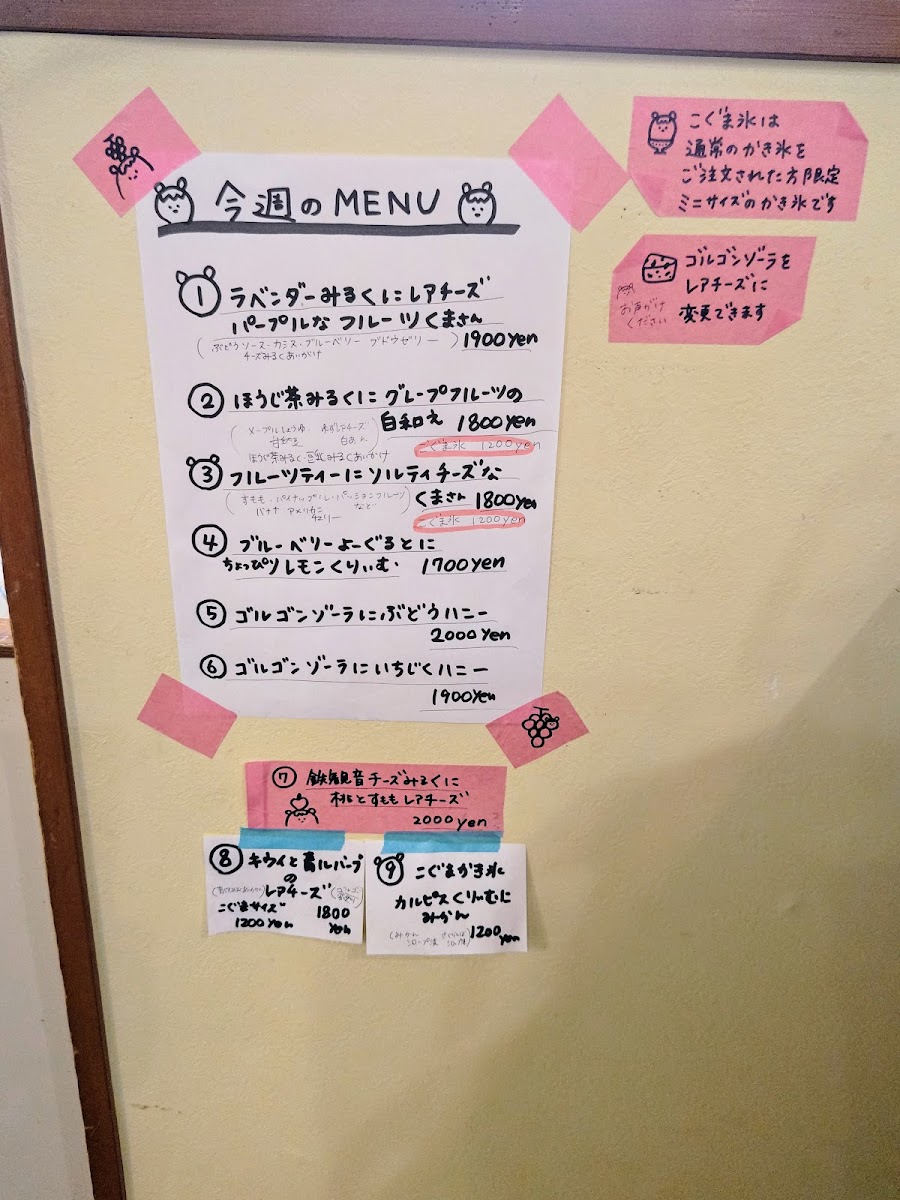 今週のMENU
① ラベンダーみるくにレアチーズ
パープルな フルーツくまさん
(ぶどうソース・カシス・ブルーベリー ブドウゼリー
チーズみるくあいがけ) 1900yen
② ほうじ茶みるくに グレープフルーツの
白和え 1800yen
(メープルしょうゆ レアチーズ
甘納豆 白あん
こぐま氷 1200yen
ほうじ茶みるく・豆乳みるくあいがけ)
③ フルーツティーに ソルティチーズな
くまさん 1800yen
(すもも・パイナップル・パッションフルーツ
バナナ アメリカン など
チェリー)
こぐま氷 1200yen
④ ブルーベリーよーぐるとに
ちょっぴりレモンくりぃむ 1700yen
⑤ ゴルゴンゾーラにぶどうハニー
2000yen
⑥ ゴルゴンゾーラにいちじくハニー
1900yen
⑦ 鉄観音チーズみるくに
桃とすもも レアチーズ
2000yen
⑧ キウイと青ルバーブ
の
レアチーズ
こぐまサイズ
1200yen
1800
yen
⑨ こぐまかき氷
カルピスくりぃむに
みかん
1200
yen
(みかん
シロップ漬
こぐま氷は
通常のかき氷を
ご注文された方限定
ミニサイズのかき氷です
ゴルゴンゾーラを
レアチーズに
変更できます
お声がけ
ください